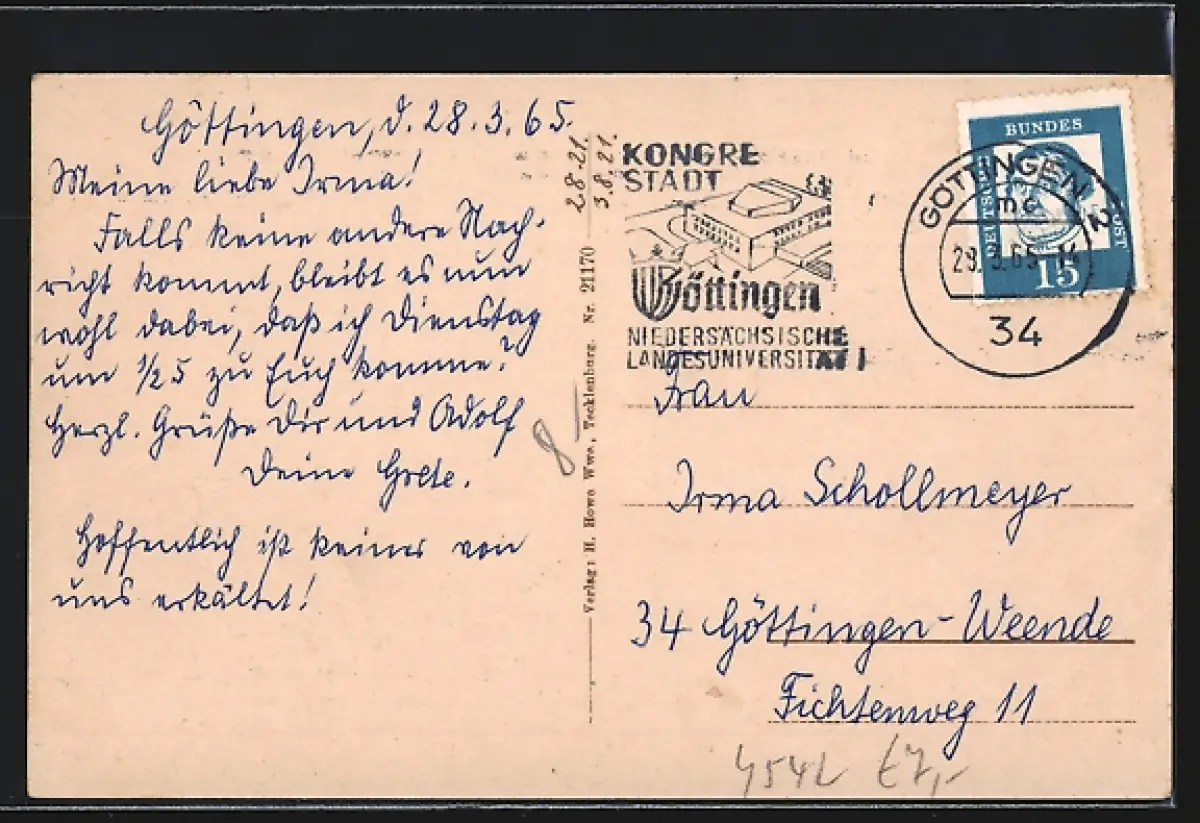 Göttingen, d. 28.3.65.
Meine liebe Irma!
Falls keine andere Nach-
richt kommt, bleibt es nun
wohl dabei, daß ich Dienstag
um ½5 zu Euch komme?
Herzl. Grüße Dir und Adolf
Deine Grete.
Hoffentlich ist keiner von
uns erkältet!
28.21.
3.8.21.
Verlag: H. Howe Wwe, Tecklenburg. Nr. 21170
KONGRE
STADT
Göttingen
NIEDERSÄCHSISCHE
LANDESUNIVERSITÄT
GÖTTINGEN 2
mc
34
BUNDES
POST
15
Frau
Irma Schollmeyer
34 Göttingen-Weende
Fichtenweg 11